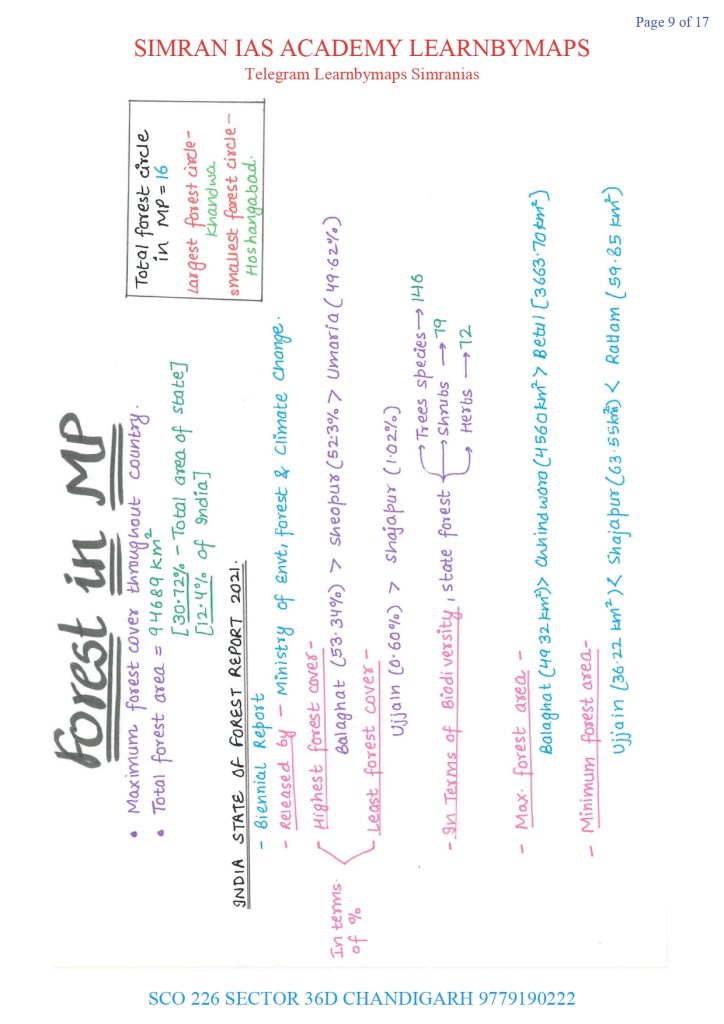 Page 9 of 17
SIMRAN IAS ACADEMY LEARNBYMAPS
Telegram Learnbymaps Simranias
Forest in MP
Total forest circle
in MP = 16
Largest forest circle-
Khandwa
smallest forest circle-
Hoshangabad.
• Maximum forest cover throughout country.
• Total forest area = 94689 km²
[30.72% - Total area of state]
[12.4% of India]
INDIA STATE OF FOREST REPORT 2021.
- Biennial Report
- Released by - Ministry of Envt, forest & Climate Change.
In terms of %
- Highest forest cover-
Balaghat (53.34%) > Sheopur (52.3% > Umaria (49.62%)
- Least forest cover-
Ujjain (0.60%) > Shajapur (1.02%)
- In Terms of Biodiversity, state forest
→ Trees species → 146
→ Shrubs → 79
→ Herbs → 72
- Max. forest area -
Balaghat (4932 km²) > Chhindwara (4560 km² > Betul [3663.70 km²)
- Minimum forest area-
Ujjain (36.22 km²) < Shajapur (63.55km²) < Ratlam (59.85 km²)
SCO 226 SECTOR 36D CHANDIGARH 9779190222